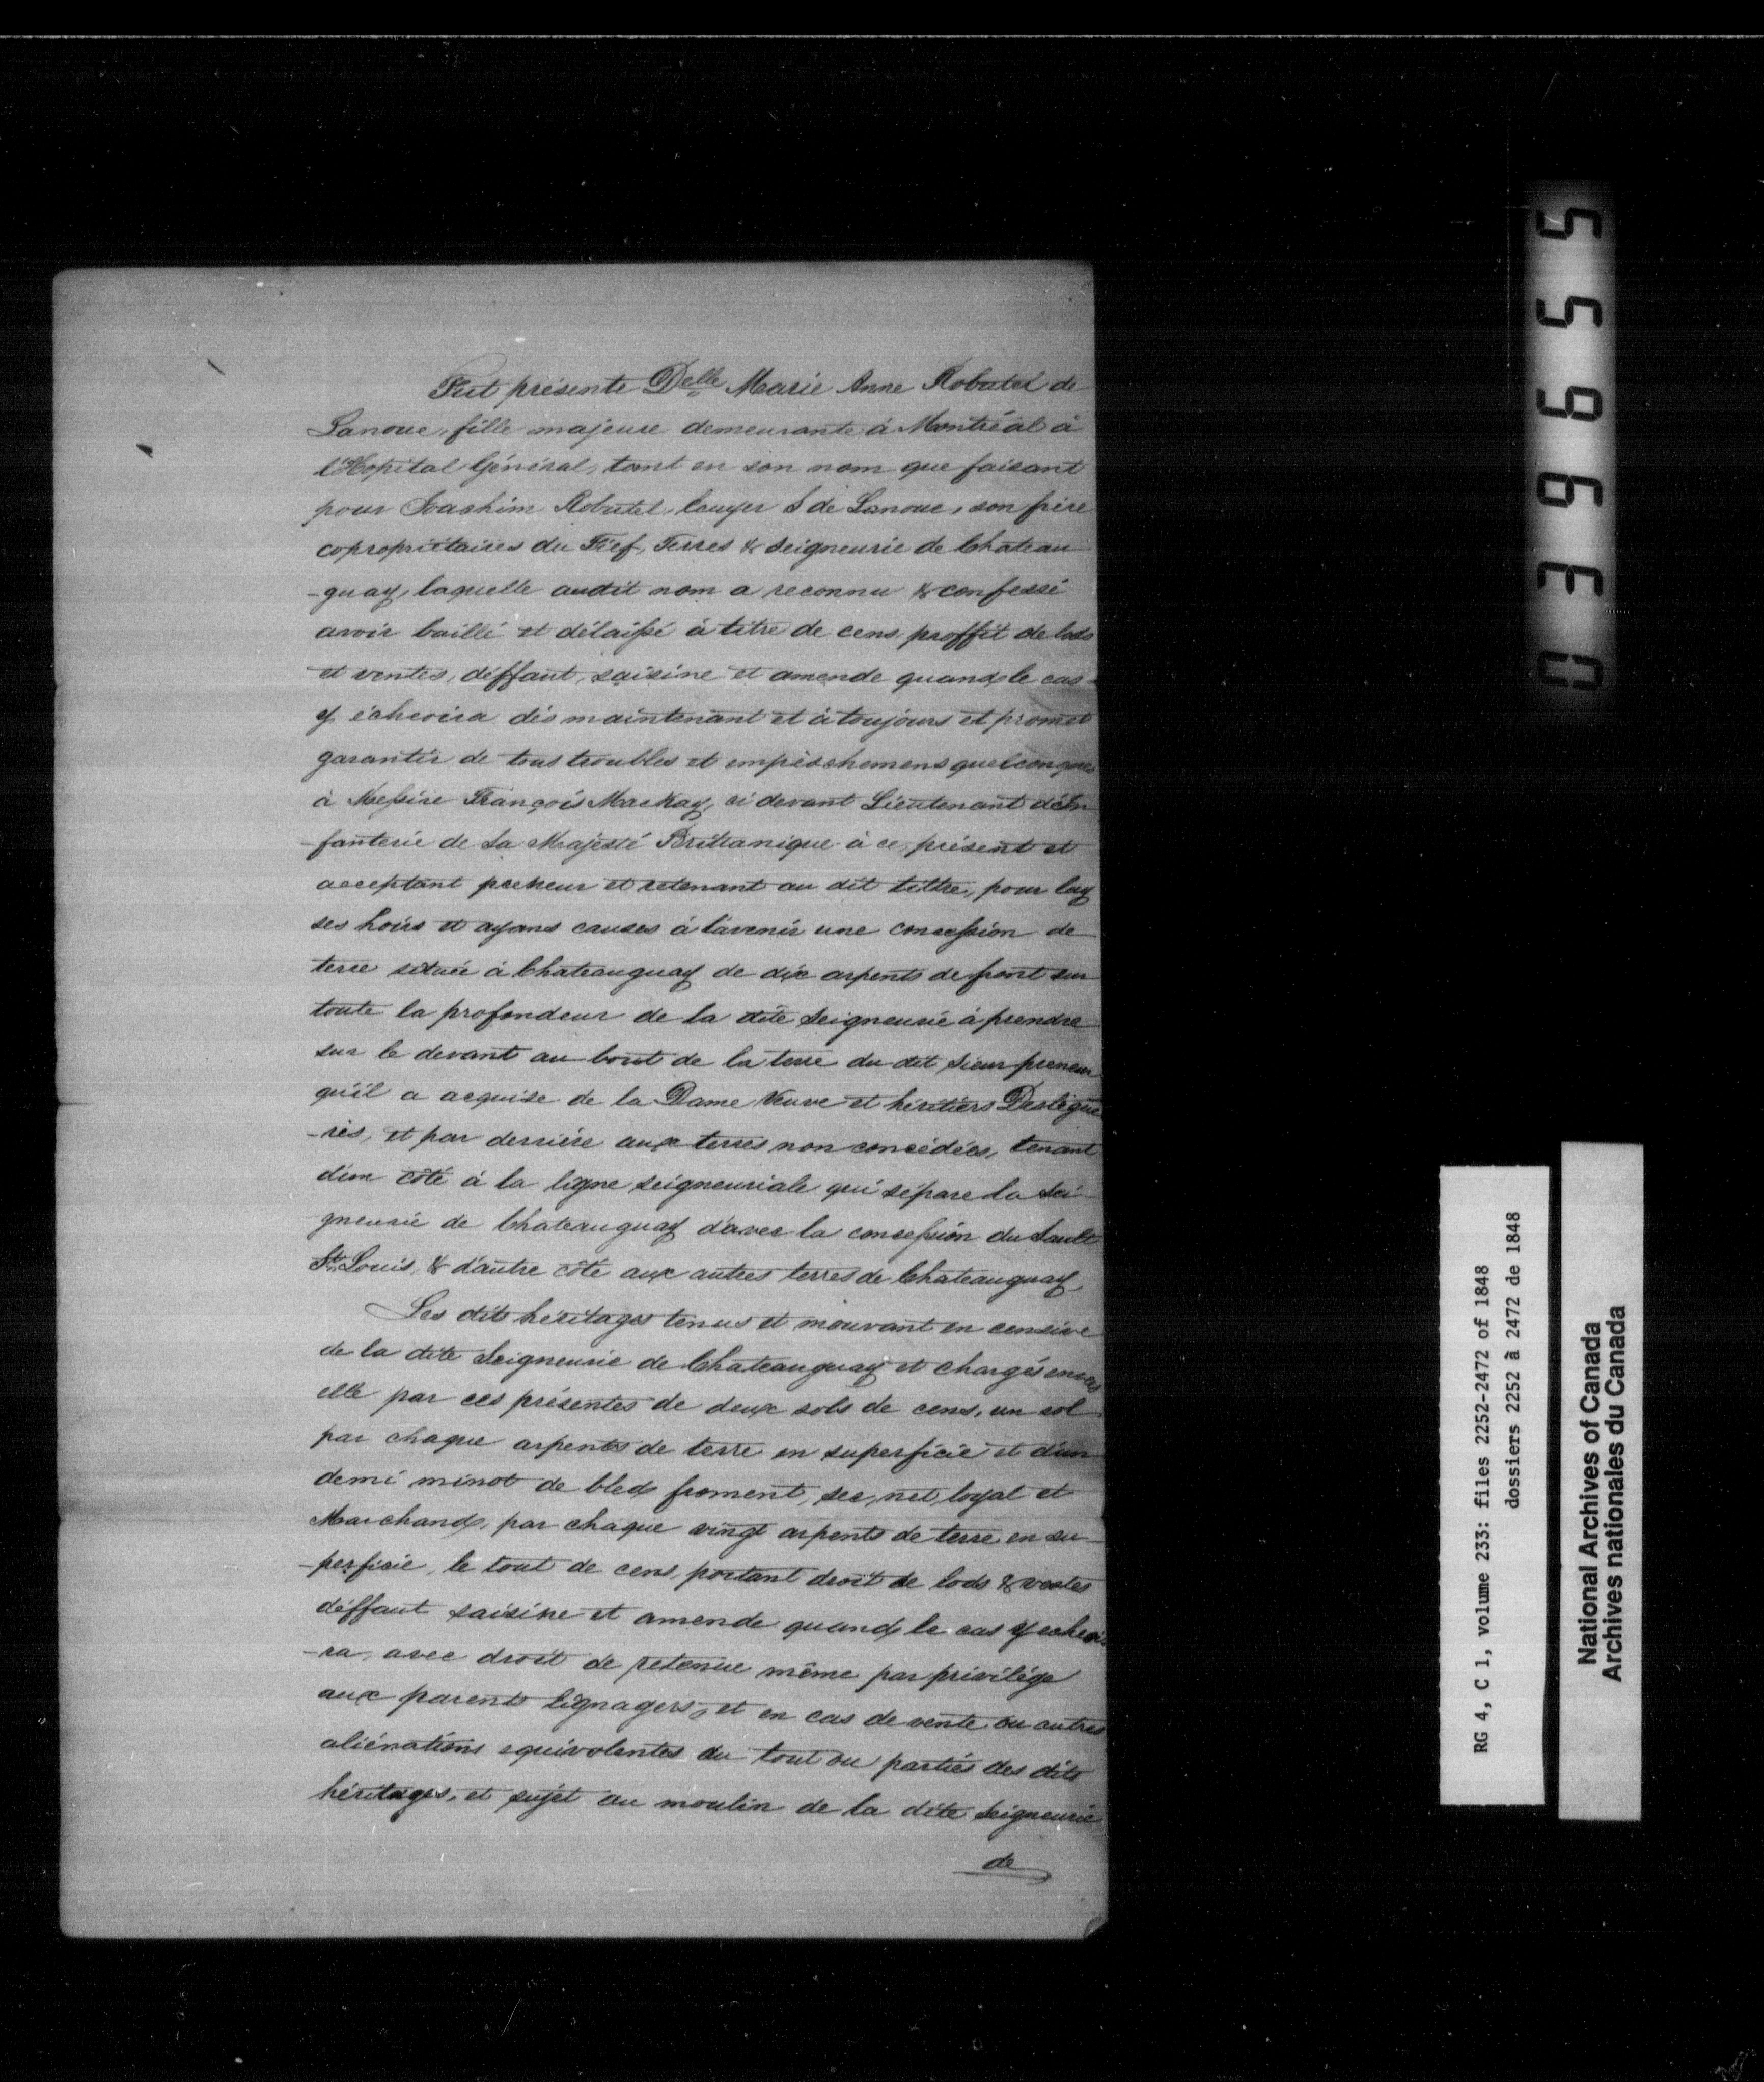 Fut présente Delle Marie Anne Robutel de
Lanoue, fille majeure demeurante à Montréal à
l'Hopital Général, tant en son nom que faisant
pour Joachim Robutel, Ecuyer S de Lanoue, son frère
copropriétaires du Fief, Terres & Seigneurie de Chateau
-guay, laquelle audit nom a reconnu & confessé
avoir baillé et délaissé à titre de cens, proffit de lods
et ventes, déffaut, saisine et amende quand le cas
y écheoira dès maintenant et à toujours et promet
garantir de tous troubles et empêschemens quelconques
à Messire François MacKay, ci devant Lieutenant d'In
-fanterie de Sa Majesté Brittanique à ce, présent et
acceptant preneur et retenant au dit tittre, pour luy
ses hoirs et ayans causes à l'avenir une concession de
terre située à Chateauguay de dix arpents de front sur
toute la profondeur de la dite Seigneurie à prendre
sur le devant au bout de la terre du dit Sieur preneur
qu'il a acquise de la Dame Veuve et héritiers Desligne
-ris, et par derrière aux terres non concédées, tenant
d'un côté à la ligne seigneuriale qui sépare la Sei-
gneurie de Chateauguay d'avec la concession du Sault
St. Louis, & d'autre côté aux autres terres de Chateauguay,
Les dits héritages tenus et mouvant en censive
de la dite Seigneurie de Chateauguay et chargés envers
elle par ces présentes de deux sols de cens, un sol
par chaque arpents de terre en superficie et d'un
demi minot de bled froment, sec, net, loyal et
Marchand, par chaque vingt arpents de terre en su-
-perficie, le tout de cens, portant droit de lods & ventes
déffaut saisine et amende quand le cas y écheoi-
-ra, avec droit de retenue même par privilége
aux parents lignagers, et en cas de vente ou autres
aliénations equivolentes du tout ou parties des dits
héritages, et sujet au moulin de la dite Seigneurie
de
039655
RG 4, C 1, volume 233: files 2252-2472 of 1848
dossiers 2252 à 2472 de 1848
National Archives of Canada
Archives nationales du Canada